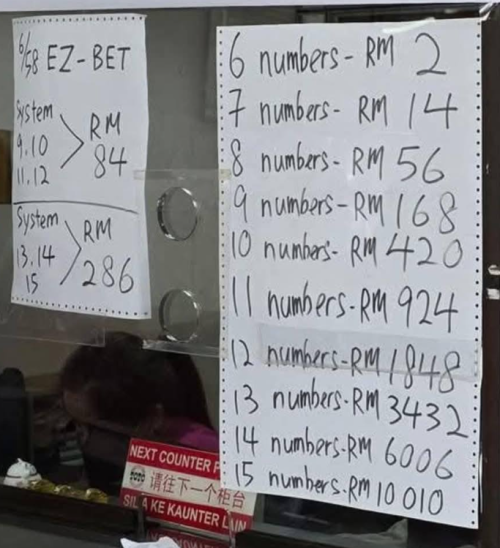 6/58 EZ-BET
System
9.10
11.12
RM
84
System
13.14
15
RM
286
6 numbers - RM 2
7 numbers - RM 14
8 numbers - RM 56
9 numbers - RM 168
10 numbers - RM 420
11 numbers - RM 924
12 numbers - RM 1848
13 numbers - RM 3432
14 numbers - RM 6006
15 numbers - RM 10 010
NEXT COUNTER P
请往下一个柜台
KE KAUNTER LAIN